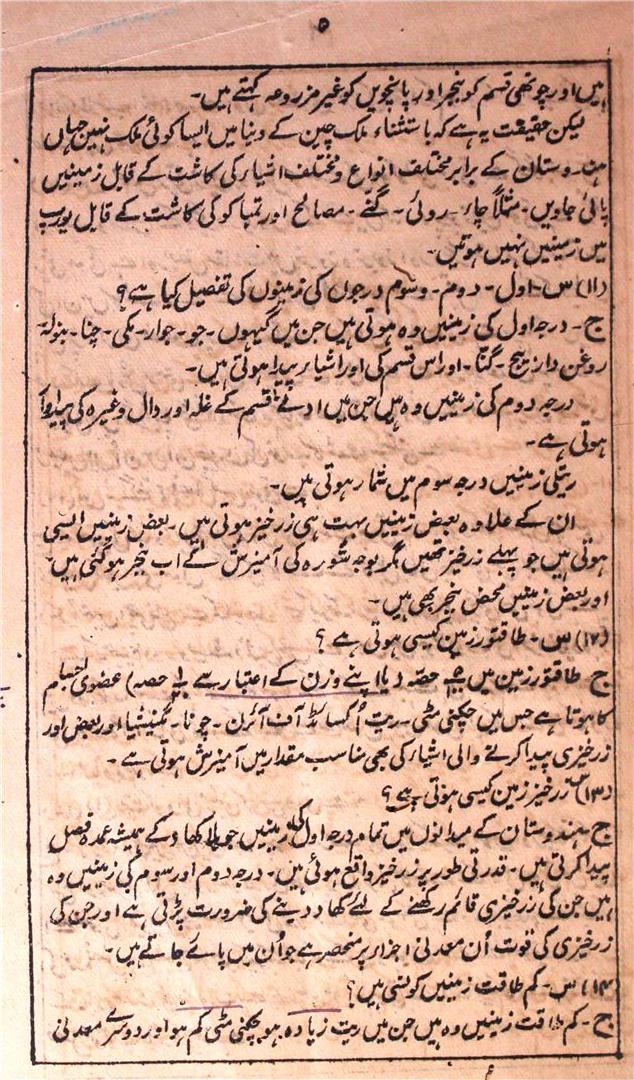 ۵
ہیں اور چوتھی قسم کو بنجر اور پانچویں کو غیر مزروعہ کہتے ہیں۔
لیکن حقیقت یہ ہے کہ باستثناء ملک چین کے دنیا میں ایسا کوئی ملک نہیں جہاں
ہندوستان کے برابر مختلف انواع و مختلف اشیاء کی کاشت کے قابل زمینیں
پائی جاویں۔ مثلاً چاء۔ روئی۔ گنّے۔ مصالح اور تمباکو کی کاشت کے قابل یورپ
میں زمینیں نہیں ہوتیں۔
(۱۱) س۔ اول۔ دوم۔ وسوم درجوں کی زمینوں کی تفصیل کیا ہے؟
ج۔ درجہ اول کی زمینیں وہ ہوتی ہیں جن میں گیہوں۔ جو۔ جوار۔ مکی۔ چنا۔ بنولہ
روغن دار بیج۔ گنّا۔ اور اس قسم کی اور اشیاء پیدا ہوتی ہیں۔
درجہ دوم کی زمینیں وہ ہیں جن میں ادنےٰ قسم کے غلہ اور دال وغیرہ کی پیداوار
ہوتی ہے۔
ریتلی زمینیں درجہ سوم میں شمار ہوتی ہیں۔
ان کے علاوہ بعض زمینیں بہت ہی زرخیز ہوتی ہیں۔ بعض زمینیں ایسی
ہوتی ہیں جو پہلے زرخیز تھیں مگر بوجہ شورہ کی آمیزش کے اب بنجر ہو گئی ہیں۔
اور بعض زمینیں محض بنجر بھی ہیں۔
(۱۲) س۔ طاقتور زمین کیسی ہوتی ہے؟
ج۔ طاقتور زمین میں حصہ (یا اپنے وزن کے اعتبار سے حصہ) عضوی اجسام
کا ہوتا ہے جس میں چکنی مٹی۔ ریت اُکسائڈ آف آئرن۔ چونا۔ مگنیشیا اور بعض اور
زرخیزی پیدا کرنے والی اشیاء کی بھی مناسب مقدار میں آمیزش ہوتی ہے۔
(۱۳) س زرخیز زمین کیسی ہوتی ہے؟
ج۔ ہندوستان کے میدانوں میں تمام درجہ اول کی زمینیں جو بلا کھاد کے ہمیشہ عمدہ فصل
پیدا کرتی ہیں۔ قدرتی طور پر زرخیز واقع ہوئی ہیں۔ درجہ دوم اور سوم کی زمینیں وہ
ہیں جن کی زرخیزی قائم رکھنے کے لئے کھاد دینے کی ضرورت پڑتی ہے اور جن کی
زرخیزی کی قوت اُن معدنی اجزاء پر منحصر ہے جو اُن میں پائے جاتے ہیں۔
(۱۴) س۔ کم طاقت زمینیں کونسی ہیں؟
ج۔ کم طاقت زمینیں وہ ہیں جن میں ریت زیادہ ہو چکنی مٹی کم ہو اور دوسرے معدنی